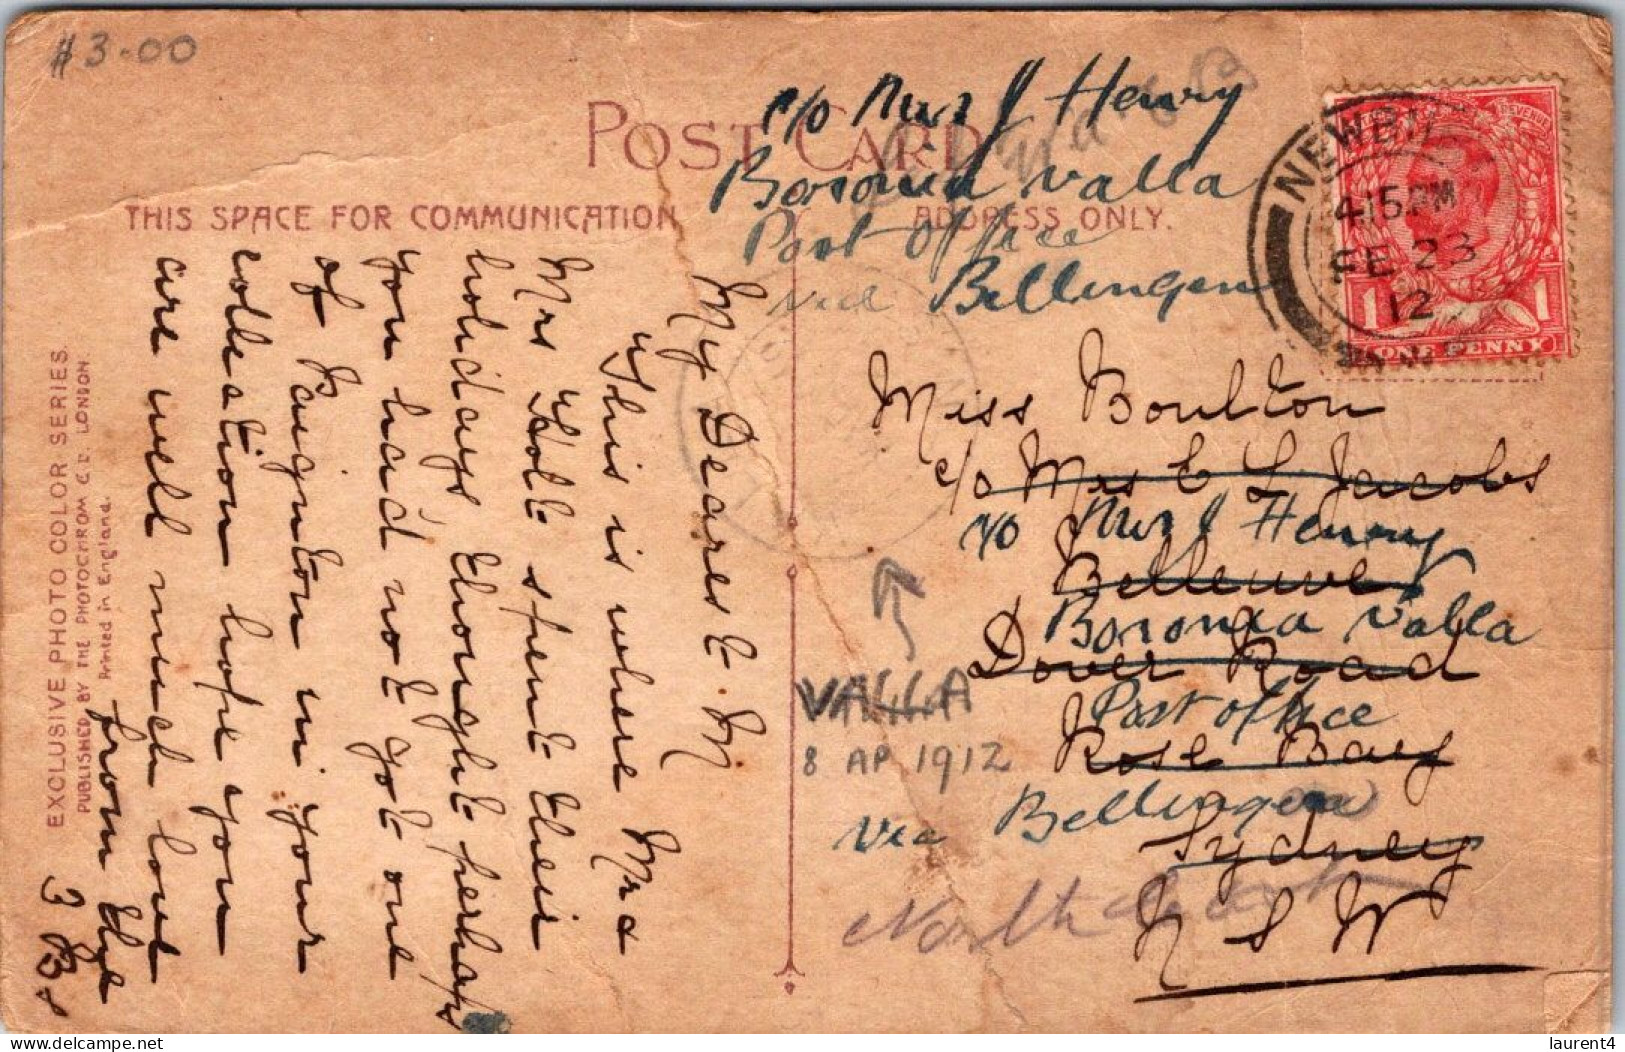 #3-00
POST CARD
THIS SPACE FOR COMMUNICATION
ADDRESS ONLY.
EXCLUSIVE PHOTO COLOR SERIES.
PUBLISHED BY THE PHOTOCHROM Co. Ld. LONDON.
Printed in England.
My Dearest M
This is where Mrs
Mrs Holt spent their
holidays thought perhaps
you had not got one
of Paignton in your
collection hope you
are well much love
from the
3 Bs
c/o Mrs J Henry
Boronia Valla
Post Office
via Bellingen
Miss Boulton
c/o Mrs E L Jacobs
c/o Mrs J Henry
Bellevue
Boronia Valla
Dover Road
Post office
Rose Bay
via Bellingen
Sydney
North
N S W
VALLA
8 AP 1912
NEWBU
4.15 PM
FE 23
12
REVENUE
1 1
ONE PENNY
laurent4